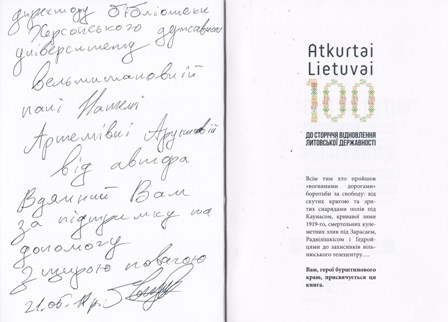 директору бібліотеки
Херсонського державного
університету
Вельмишановній
пані Наталі
Артемівні Арустамовій
від автора
Вдячний Вам
за підтримку та
допомогу
З щирою повагою
Atkurtai
Lietuvai
100
ДО СТОРІЧЧЯ ВІДНОВЛЕННЯ
ЛИТОВСЬКОЇ ДЕРЖАВНОСТІ
Всім тим хто пройшов
«вогняними дорогами»
боротьби за свободу: від
скутих кригою та зри-
тих снарядами полів під
Каунасом, кривавої зими
1919-го, смертельних куле-
метних злив під Зарасаєм,
Радвілішкісом і Гедрой-
цями до захисників віль-
нюського телецентру…
Вам, герої бурштинового
краю, присвячується ця
книга.